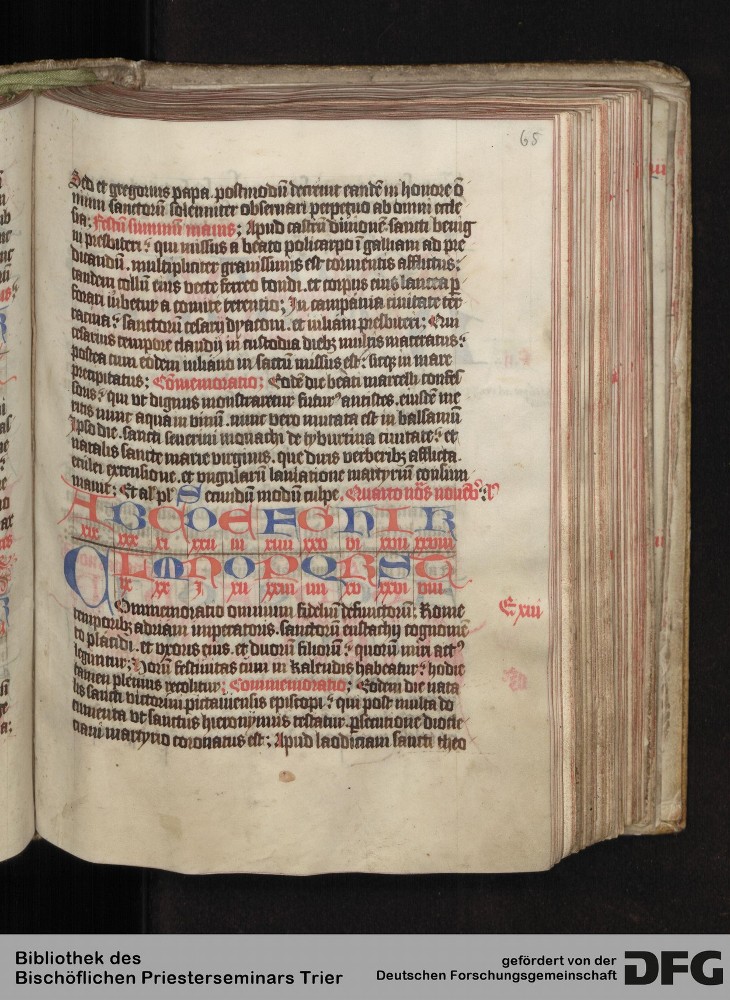 65
Sed et gregorius papa . postmodū decreuit eandē in honore ō
nium sanctorū solenniter obseruari perpetuo ab omni eccle
sia: Festū summū maius; Apud castrū diuionē sancti benig
ni presbiteri: qui missus a beato policarpo ī galliam ad pre
dicandū . multipliciter grauissimis est tormentis afflictus:
tandem collū eius vecte ferreo tondi . et corpus eius lancea p
forari iubetur a comite terentio; In campania ciuitate ter
racina: sanctorū cesarij dyaconi . et iuliani presbiteri; Qui
cesarius tempore claudij in custodia diebȝ multis maceratus:
postea cum eodem iuliano in saccū missus est: sicqȝ in mare
precipitatus; Cōmemoratio; Eodē die beati marcelli confes
soris: qui vt dignus monstraretur futur⁹ antistes . eiusdē me
ritis nunc aqua in vinū . nunc vero mutata est in balsamū
Ipso die . sancti seuerini monachi de tyburtina ciuitate: et
natalis sancte marie virginis . que duris verberibȝ afflicta .
eculei extensione . et vngularū laniatione martyriū consum
mauit; Et al' pl' Secundū modū culpe . Quarto no͞s nouēb':
A B C D E F G H I K
xix xxx xi xxii iii xiiii xxv vi xvii xxviii
L M N O P Q R S T
ix xx i xii xxiii iiii xv xxvi viii
Commemoratio omnium fideliū defunctorū; Rome
E xiii
temporibȝ adriani imperatoris . sanctorū eustachij cognomē
to placidi . et vxoris eius . et duorū filiorū: quorū miri act⁹
leguntur; Horū festiuitas cum in kalendis habeatur: hodie
tamen plenius recolitur; Commemoratio; Eodem die nata
lis sancti victorini pictauiensis episcopi: qui post multa do
cumenta vt sanctus hieronymus testatur . psecutione diocle
ciani martyrio coronatus est; Apud laodiciam sancti theo
Bibliothek des
Bischöflichen Priesterseminars Trier
gefördert von der
Deutschen Forschungsgemeinschaft
DFG